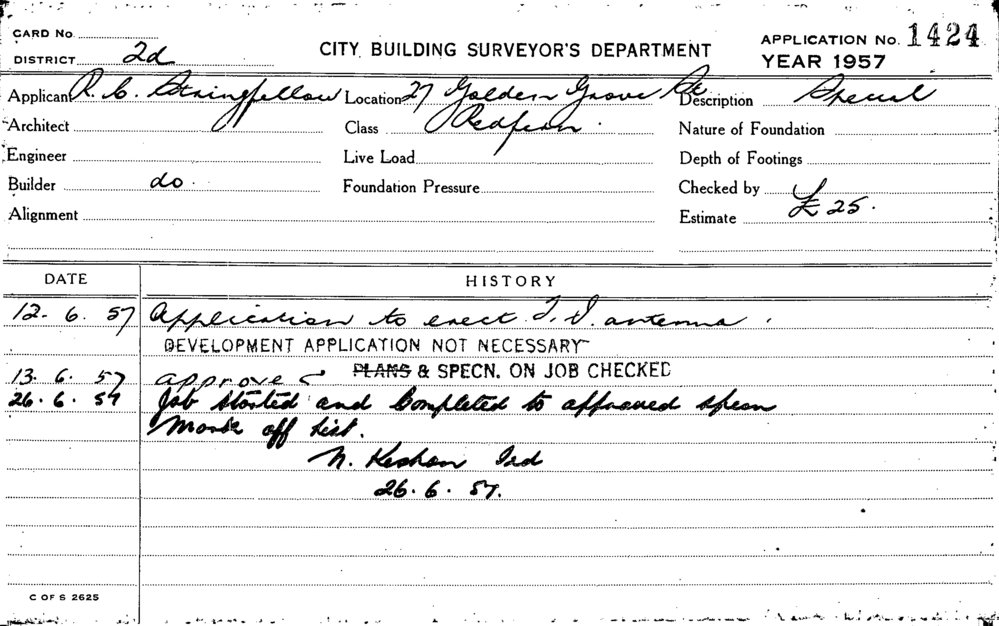 CARD No.
DISTRICT 2d
CITY BUILDING SURVEYOR'S DEPARTMENT
APPLICATION No. 1424
YEAR 1957
Applicant R. C. Stringfellow Location 27 Golden Grove St. Description Special
Architect Class Redfern. Nature of Foundation
Engineer Live Load Depth of Footings
Builder do. Foundation Pressure Checked by
Alignment Estimate £25.
DATE HISTORY
12. 6. 57 Application to erect T.V. antenna.
DEVELOPMENT APPLICATION NOT NECESSARY
13. 6. 57 approved PLANS & SPECN. ON JOB CHECKED
26. 6. 57 Job Started and Completed to approved specn
Mark off list.
N.
26. 6. 57.
C OF S 2625